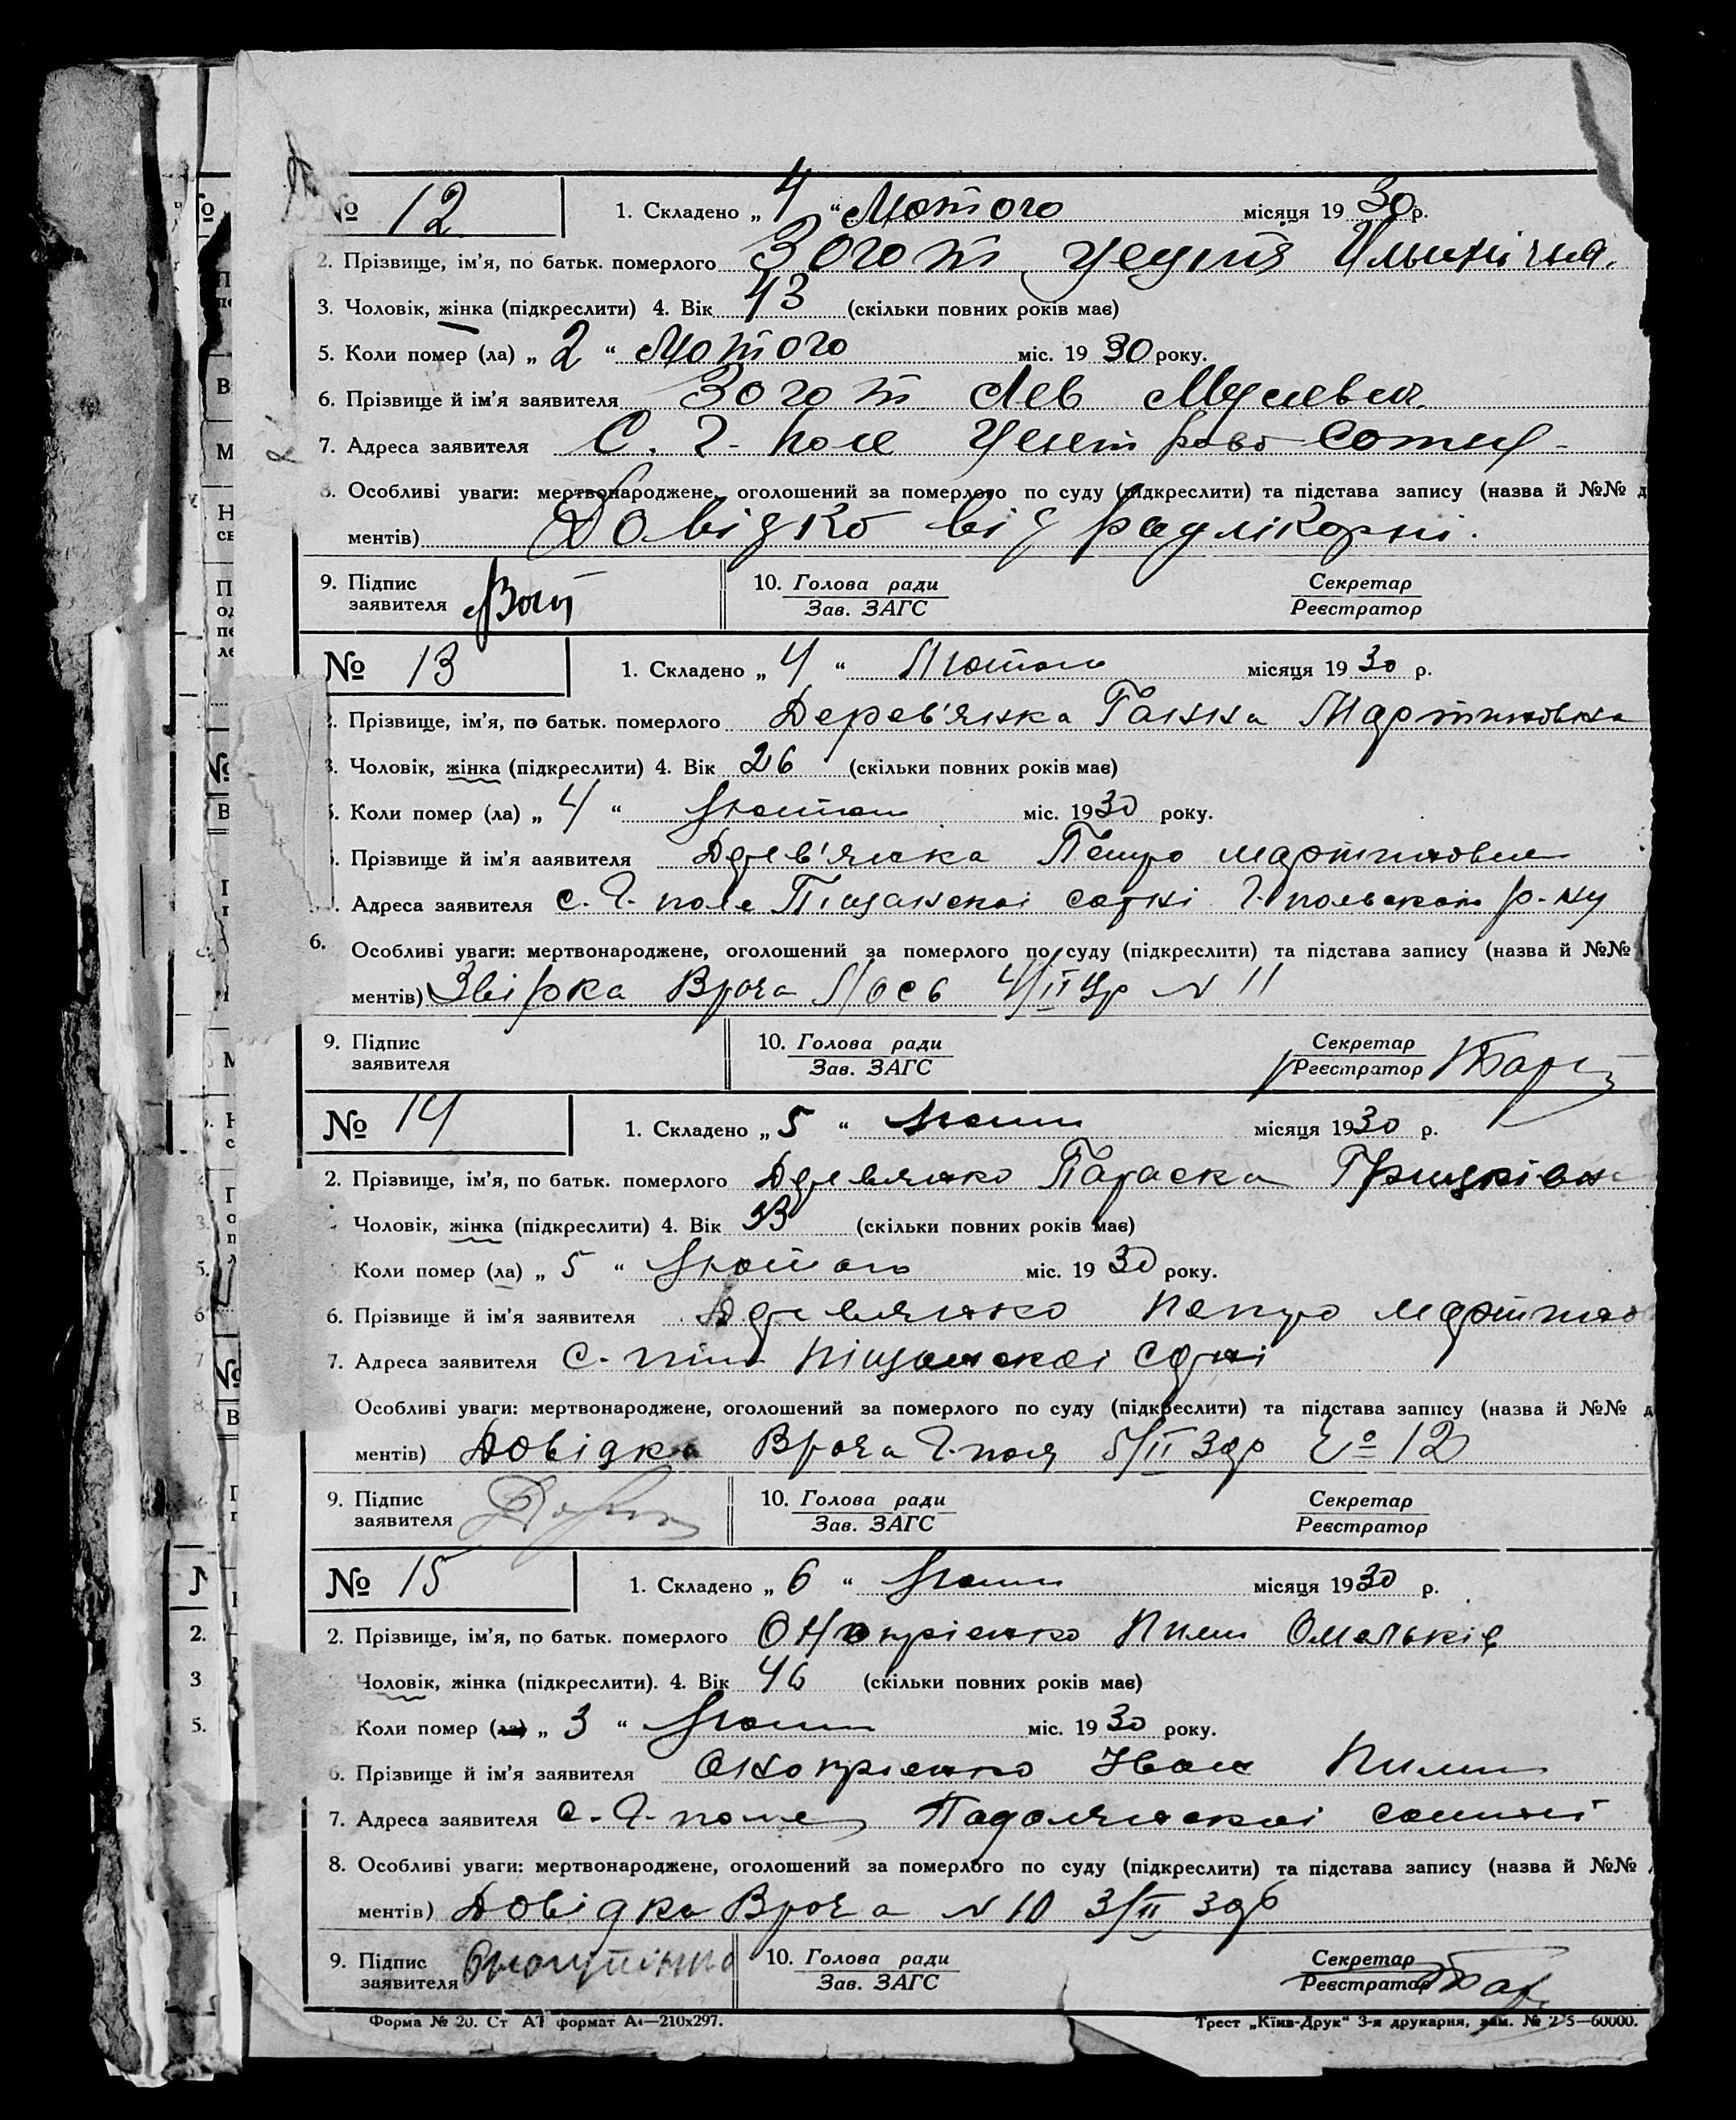 № 12 1. Складено „ 4 “ Лютого місяця 19 30 р.
2. Прізвище, ім'я, по батьк. померлого Зогот
3. Чоловік, жінка (підкреслити) 4. Вік 43 (скільки повних років має)
5. Коли помер (ла) „ 2 “ Лютого міс. 19 30 року.
6. Прізвище й ім'я заявителя Зогот Лев
7. Адреса заявителя С. Г. поле
8. Особливі уваги: мертвонароджене, оголошений за померлого по суду (підкреслити) та підстава запису (назва й №№ д
ментів) Довідка від
9. Підпис 10. Голова ради Секретар
заявителя Зав. ЗАГС Реєстратор
№ 13 1. Складено „ 4 “ Лютого місяця 19 30 р.
2. Прізвище, ім'я, по батьк. померлого Дерев'янка Ганна Мартиновна
3. Чоловік, жінка (підкреслити) 4. Вік 26 (скільки повних років має)
5. Коли помер (ла) „ 4 “ Лютого міс. 19 30 року.
Прізвище й ім'я заявителя Дерев'янка Петро Мартинович
Адреса заявителя с. Г. поле Піщанскоі сотні Г. польского р-ну
6. Особливі уваги: мертвонароджене, оголошений за померлого по суду (підкреслити) та підстава запису (назва й №№
ментів) Врача Лось 4/II 30р N 11
9. Підпис 10. Голова ради Секретар
заявителя Зав. ЗАГС Реєстратор
№ 14 1. Складено „ 5 “ Лютого місяця 19 30 р.
2. Прізвище, ім'я, по батьк. померлого Деревянко Параска
Чоловік, жінка (підкреслити) 4. Вік 33 (скільки повних років має)
Коли помер (ла) „ 5 “ Лютого міс. 19 30 року.
6. Прізвище й ім'я заявителя Деревянко Петро Мартинов
7. Адреса заявителя с. Піщанскоі сотні
Особливі уваги: мертвонароджене, оголошений за померлого по суду (підкреслити) та підстава запису (назва й №№ д
ментів) Довідка Врача Г. поля 5/II 30р № 12
9. Підпис 10. Голова ради Секретар
заявителя Зав. ЗАГС Реєстратор
№ 15 1. Складено „ 6 “ Лютого місяця 19 30 р.
2. Прізвище, ім'я, по батьк. померлого Онопрієнко Пилип Омельків
Чоловік, жінка (підкреслити). 4. Вік 46 (скільки повних років має)
Коли помер (ла) „ 3 “ Лютого міс. 19 30 року.
6. Прізвище й ім'я заявителя Онопрієнко Іван Пилип
7. Адреса заявителя с. Г. поле Подолянскоі сотні
8. Особливі уваги: мертвонароджене, оголошений за померлого по суду (підкреслити) та підстава запису (назва й №№
ментів) Довідка Врача N 10 3/II 30р
9. Підпис 10. Голова ради Секретар
заявителя Зав. ЗАГС Реєстратор
Форма № 20. Ст А7 формат А4—210х297. Трест „Київ-Друк“ 3-я друкарня, зам. № 2 5—60000.